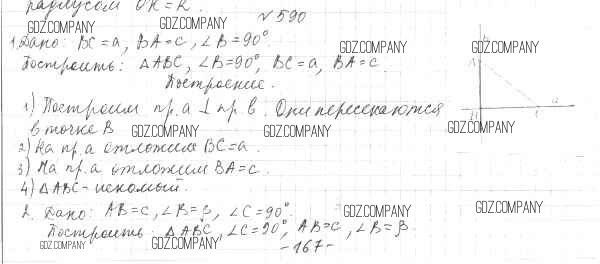 радиусом OK = R.
№ 590
1. Дано: BC = a, BA = c, ∠B = 90°.
Построить: △ABC, ∠B = 90°, BC = a, BA = c.
Построение.
1) Построим пр. a ⊥ пр. в. Они пересекаются
в точке B
2) На пр. a отложим BC = a.
3) На пр. a отложим BA = c.
4) △ABC - искомый.
2. Дано: AB = c, ∠B = β, ∠C = 90°.
Построить: △ABC, ∠C = 90°, AB = c, ∠B = β.
- 167 -
A
B
a
GDZ.COMPANY
GDZ.COMPANY
GDZ.COMPANY
GDZ.COMPANY
GDZ.COMPANY
GDZ.COMPANY
GDZ.COMPANY
GDZ.COMPANY
GDZ.COMPANY
GDZ.COMPANY
GDZ.COMPANY
GDZ.COMPANY
GDZ.COMPANY